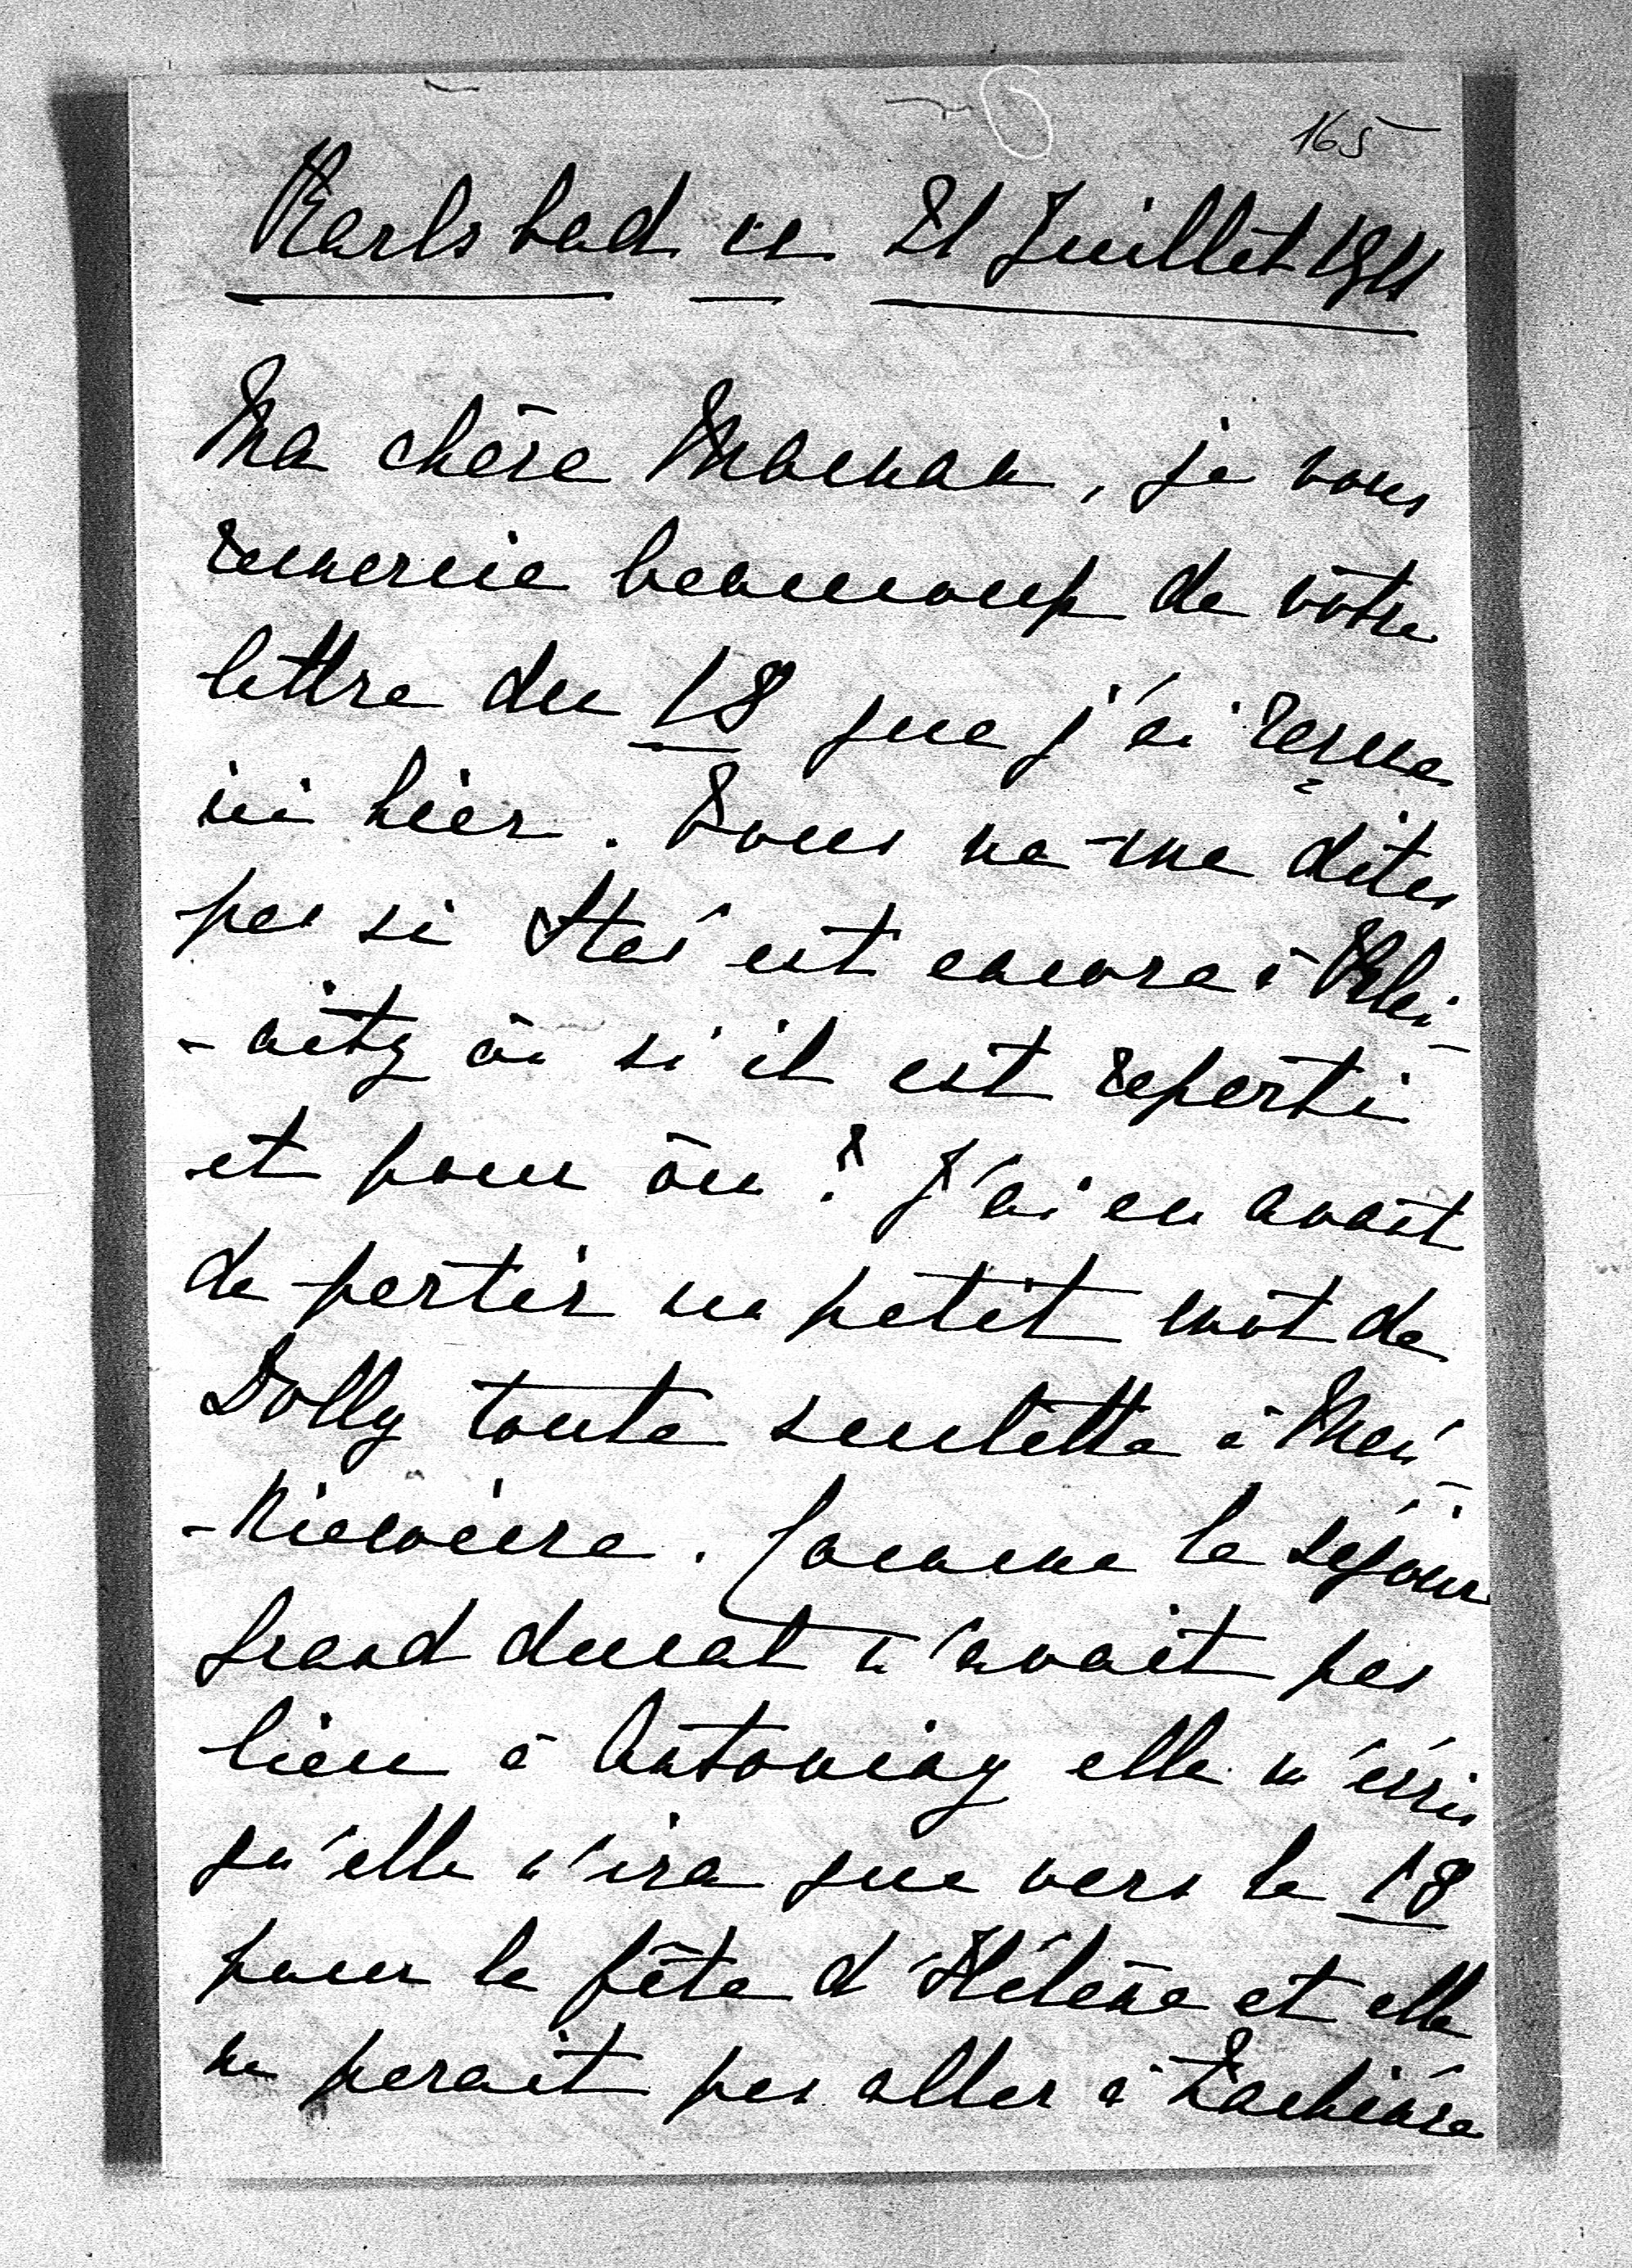 165
Karlsbad ce 21 Juillet 1911
Ma chère Maman, je vous
remercie beaucoup de vôtre
lettre du 18 que j'ai reçue
ici hier. Vous ne me dites
pas si Staś est encore à
si il est reparti
et pour où? J'ai eu avant
de partir un petit mot de
Dolly toute seulette à
Comme le séjour
grand ducal n'avait pas
lieu à Antoniny elle m'écris
qu'elle n'ira que vers le 18
pour la fête d'Hélène et elle
ne parait pas aller à